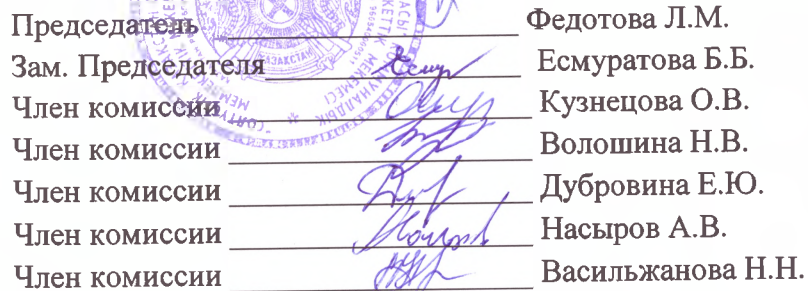 Председатель Федотова Л.М.
Зам. Председателя Есмуратова Б.Б.
Член комиссии Кузнецова О.В.
Член комиссии Волошина Н.В.
Член комиссии Дубровина Е.Ю.
Член комиссии Насыров А.В.
Член комиссии Васильжанова Н.Н.
ҚАЗАҚСТАН